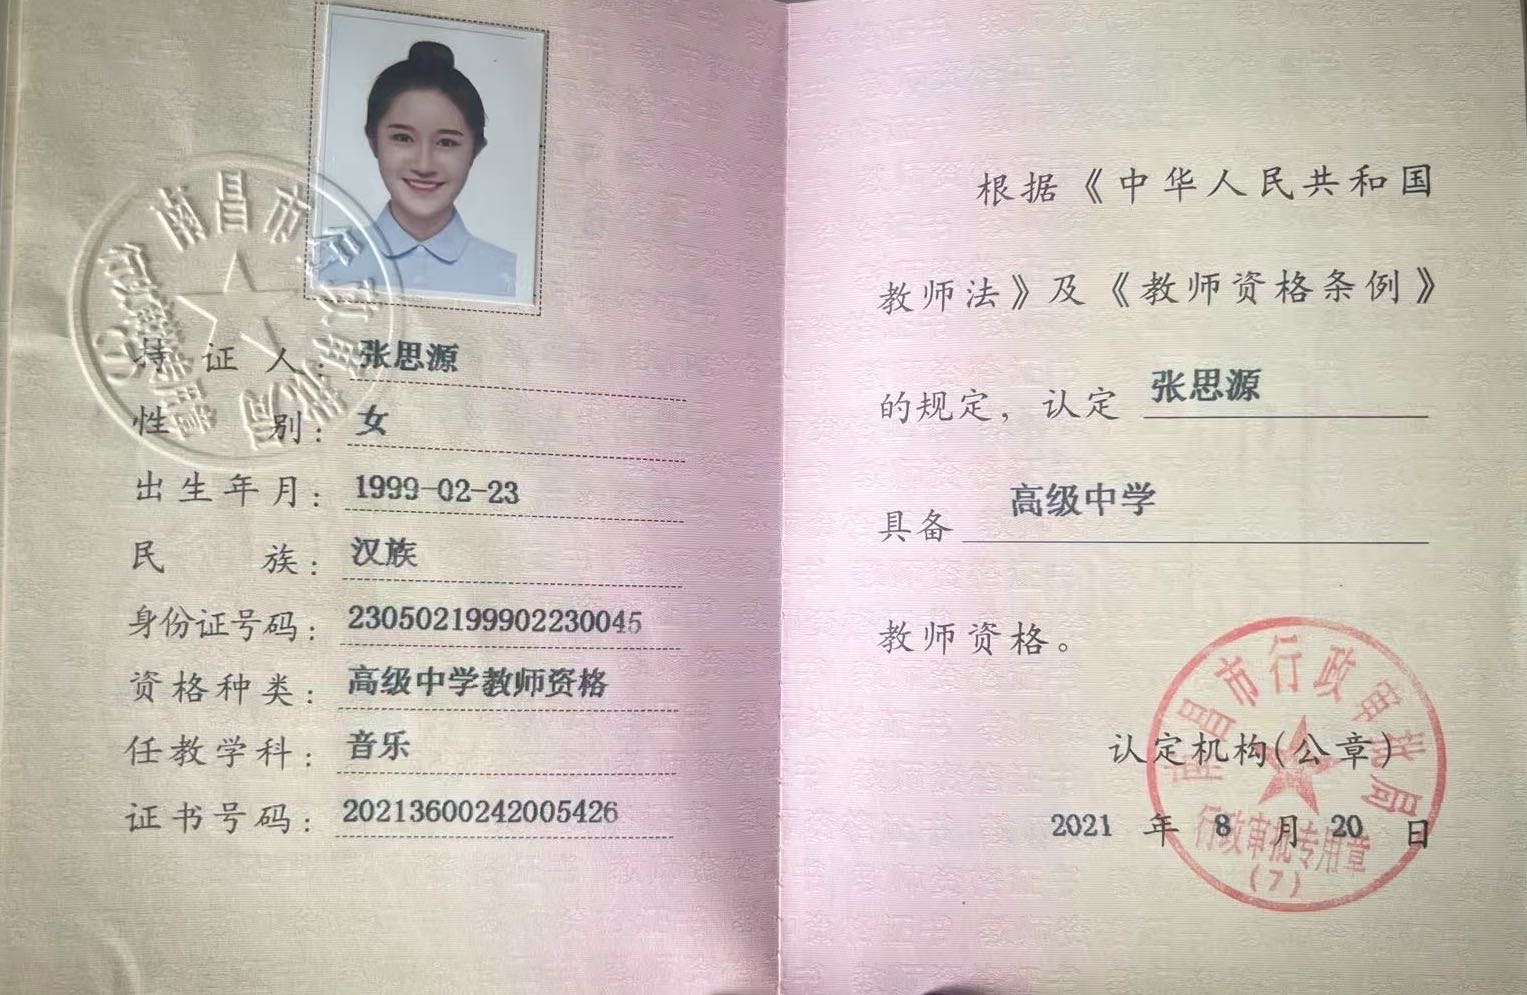 持证人：张思源
性别：女
出生年月：1999-02-23
民族：汉族
身份证号码：230502199902230045
资格种类：高级中学教师资格
任教学科：音乐
证书号码：20213600242005426
根据《中华人民共和国
教师法》及《教师资格条例》
的规定，认定 张思源
具备 高级中学
教师资格。
认定机构(公章)
2021 年 8 月 20 日
南昌市行政审批局
行政审批专用章
(7)
南昌市行政审批局